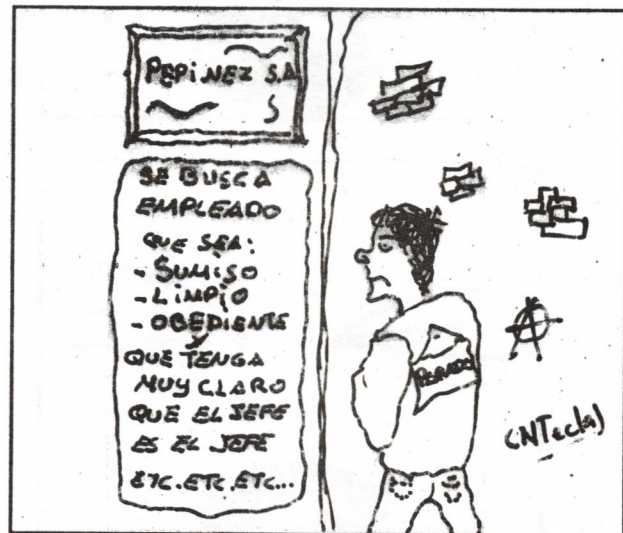 PEPINEZ S.A
SE BUSCA
EMPLEADO
QUE SEA:
- SUMISO
- LIMPIO
- OBEDIENTE
Y
QUE TENGA
MUY CLARO
QUE EL JEFE
ES EL JEFE
ETC.ETC.ETC...
PARADO
A
(NTecla)